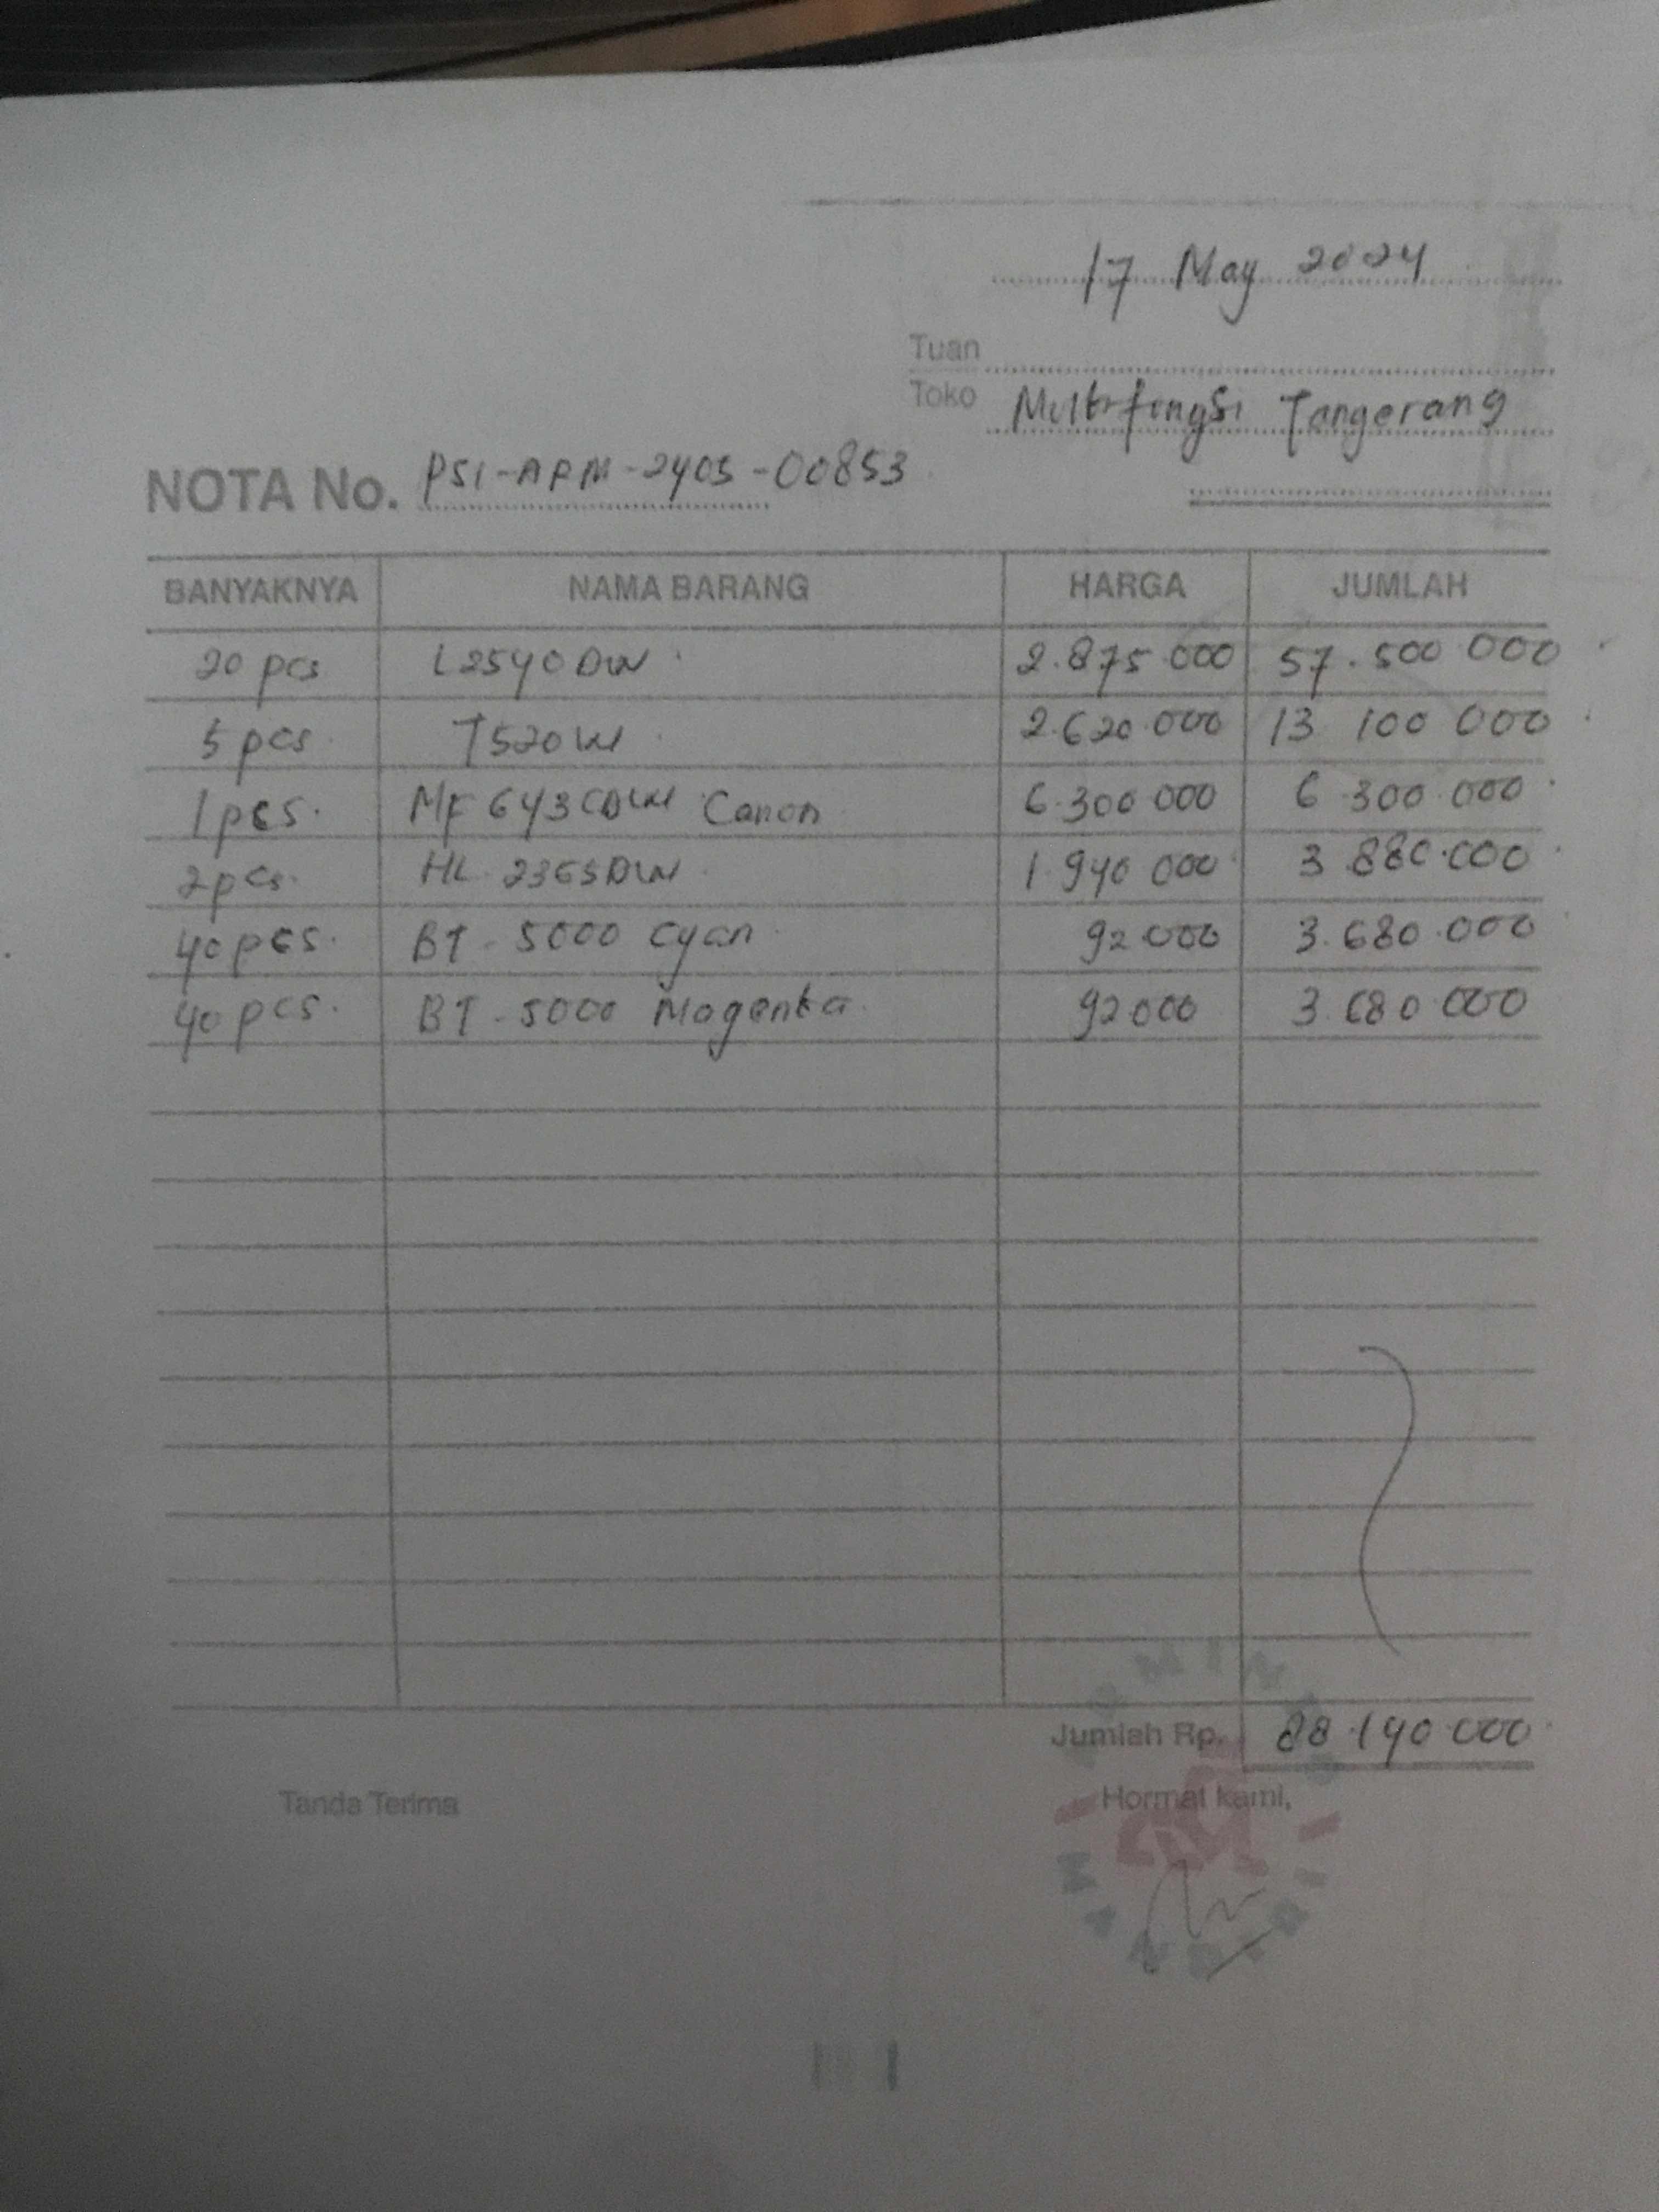 17 May 2024
Tuan
Toko Multifungsi Tangerang
NOTA No. PSI-APM-2405-00853
BANYAKNYA NAMA BARANG HARGA JUMLAH
20 pcs L2540DW 2.875.000 57.500.000
5 pcs T520W 2.620.000 13.100.000
1 pcs. MF 643CDW Canon 6.300.000 6.300.000
2 pcs. HL 2365DW 1.940.000 3.880.000
40 pcs. BT-5000 Cyan 92.000 3.680.000
40 pcs. BT-5000 Magenta 92.000 3.680.000
Jumlah Rp. 88.140.000
Tanda Terima Hormat kami,